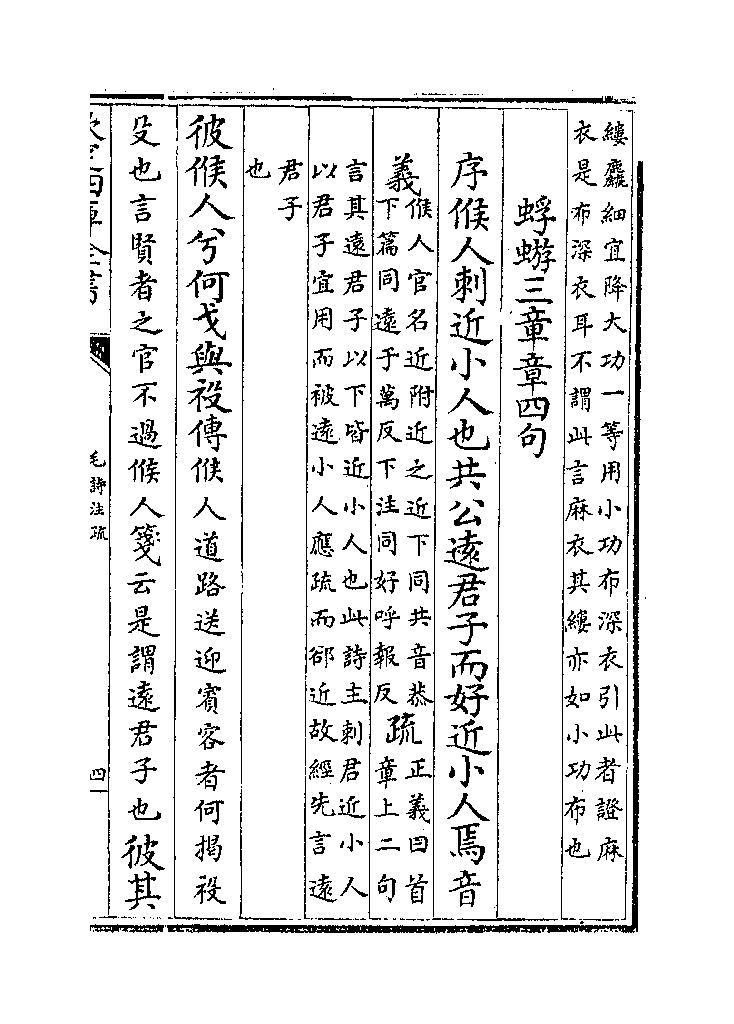 縷麤細宜降大功一等用小功布深衣引此者證麻
衣是布深衣耳不謂此言麻衣其縷亦如小功布也
蜉蝣三章章四句
序候人刺近小人也共公遠君子而好近小人焉音
義候人官名近附近之近下同共音恭
下篇同遠于萬反下注同好呼報反
疏正義曰首
章上二句
言其遠君子以下皆近小人也此詩主刺君近小人
以君子宜用而被遠小人應疏而郤近故經先言遠
君子
也
彼候人兮何戈與祋傳候人道路送迎賓客者何揭祋
殳也言賢者之官不過候人箋云是謂遠君子也彼其
毛詩注疏
四一